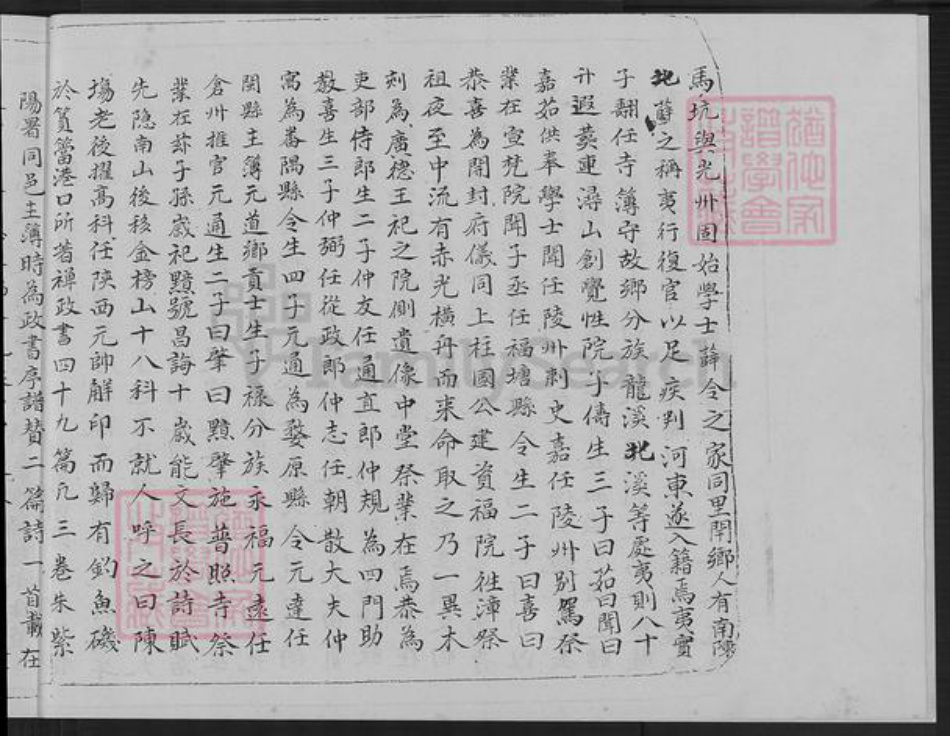 馬坑與光州固始學士薛令之家同里閈鄉人有南陳
北薛之稱夷行復官以足疾判河東遂入籍焉夷實
子翮任寺簿守故鄉分族龍溪北溪等處夷則八十
計遐葬連潯山創覺性院子儔生三子曰茹曰聞曰
嘉茹供奉學士聞任陵州刺史嘉任陵州別駕祭
業在宣梵院聞子丞任福塘縣令生二子曰喜曰
恭喜為開封府儀同上柱國公建資福院徃漳祭
祖夜至中流有赤光橫舟而來命取之乃一異木
刻為廣德王祀之院側遺像中堂祭業在焉恭為
吏部侍郎生二子仲友任通直郎仲規為四門助
教喜生三子仲弼任從政郎仲志任朝散大夫仲
寓為番隅縣令生四子元通為婺原縣令元達任
閩縣主簿元道鄉貢士生子祿分族永福元遠任
倉州推官元通生二子曰肇曰黯肇施普照寺祭
業在葑子孫歲祀黯號昌誨十歲能文長於詩賦
先隐南山後移金榜山十八科不就人呼之曰陳
塲老後擢高科任陝西元帥觧印而歸有釣魚磯
於篔簹港口所著禆政書四十九篇凢三卷朱紫
陽署同邑主簿時為政書序譜賛二篇詩一首載在